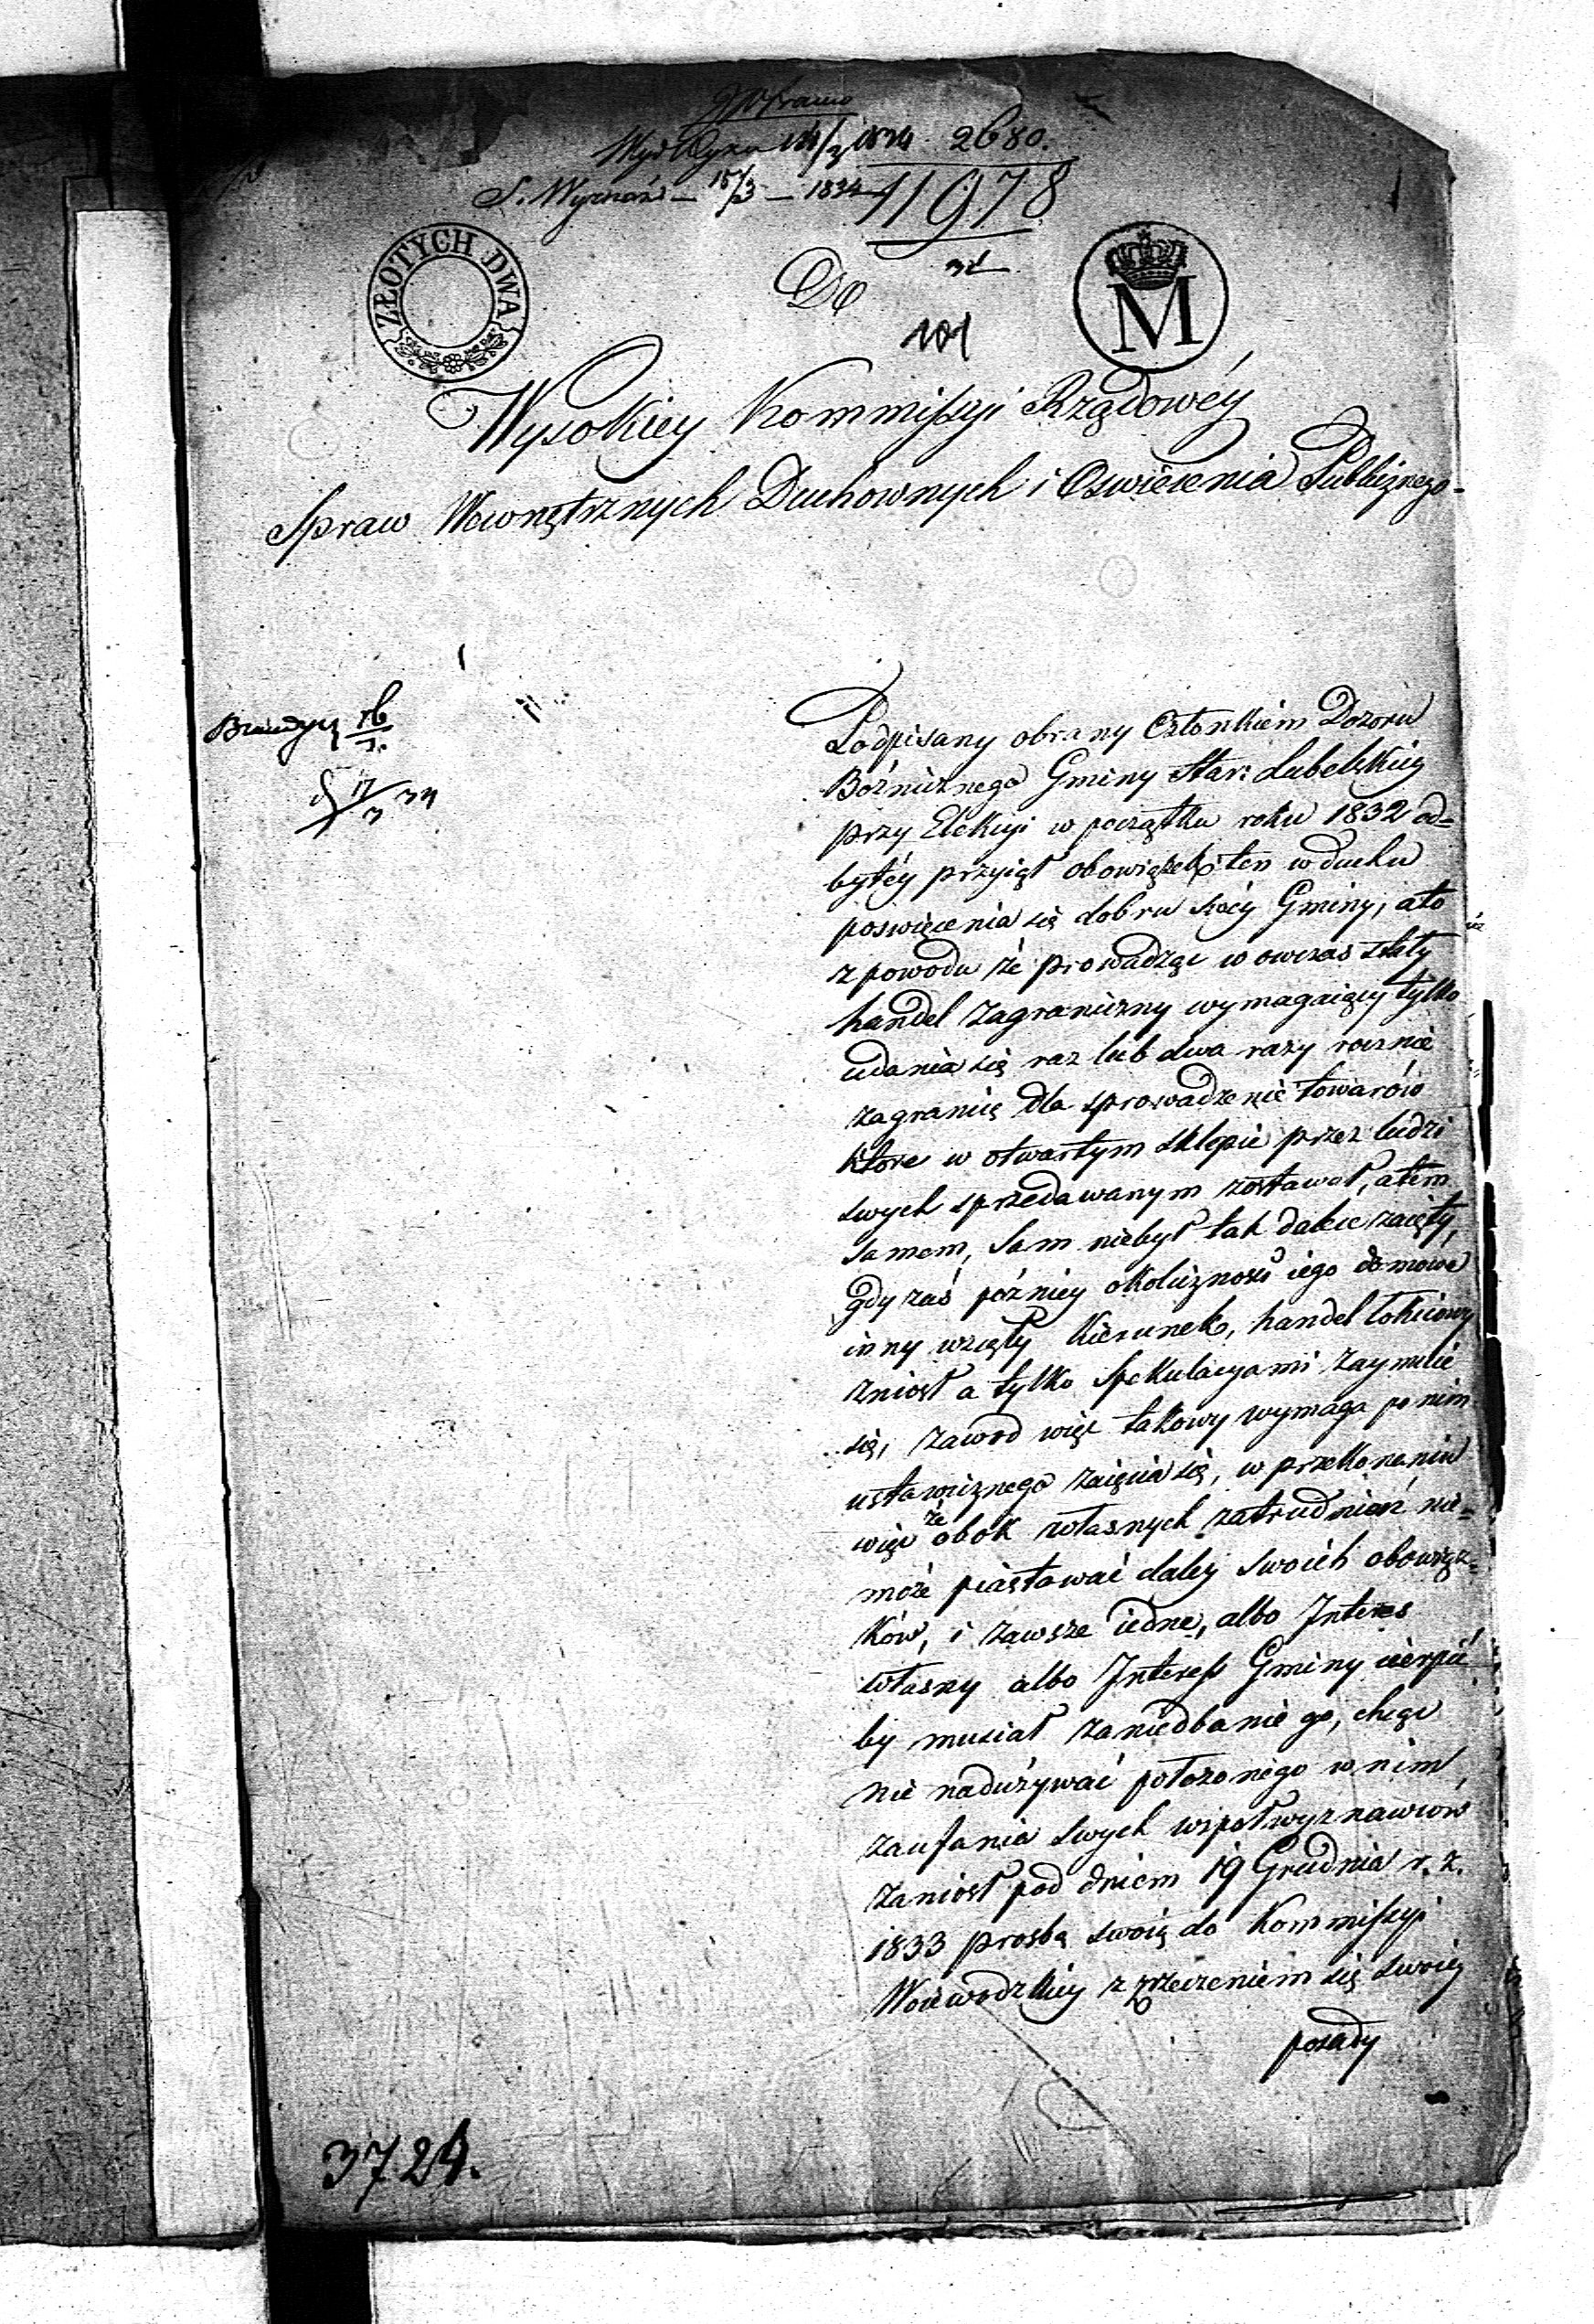 14/3 1834 2680.
S. Wyznań – 15/3 – 1834
11978
34
ZŁOTYCH DWA
M
Do
101
Wysokiey Kommissyi Rządowéy
Spraw Wewnętrznych Duchownych i Oswiecenia Publicznego.
16/3.
17/3 34
Podpisany obrany Członkiem Dozoru
Bożnicznego Gminy Star: Lubelskiey
przy Elekcyi w początku roku 1832 od=
bytéy przyiął obowiązek ten w duchu
poswięcenia się dobru swéy Gminy, a to
z powodu że prowadząc w owczas stały
handel zagraniczny wymagaiący tylko
udania się raz lub dwa razy rocznie
zagranicę dla sprowadzenie towarów
które w otwartym sklepie przez ludzi
swych sprzedawanym zostawał, a tem
samem, sam niebył tak dalece zaięty,
gdy zaś późniey okoliczności iego domowe
inny wzięły kierunek, handel łokciowy
zniosł a tylko spekulacyami zaymuie
się, zawod więc takowy wymaga po nim
ustawicznego zaięcia się, w przekonaniu
więc że obok własnych zatrudnień nie=
może piastować daley swoich obowiąz=
ków, i zawsze iedne, albo Interes
własny albo Interess Gminy cierpić
by musiał zaniedbanie go, chcąc
nie nadużywać położonego w nim
zaufania swych wspołwyznawców
zaniosł pod dniem 19 Grudnia r. z.
1833 prosbę swoię do Kommissyi
Woiewodzkiey z zrzeczeniem się swoiey
posady
3724.